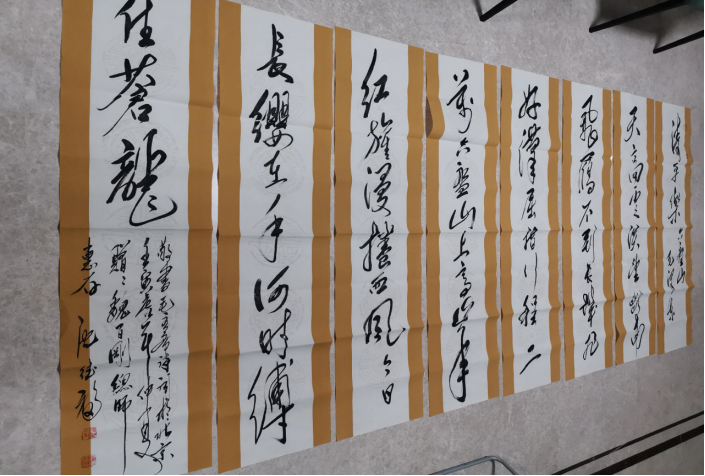 清平樂 六盤山
毛澤東
天高雲淡望斷南
飛鴈不到長城非
好漢屈指行程二
萬六盤山上高峰
红旗漫捲西風今日
長纓在手何時縛
住蒼龍
敬書毛主席詩詞於北京
壬寅年仲夏
贈魏百剛總師
惠存